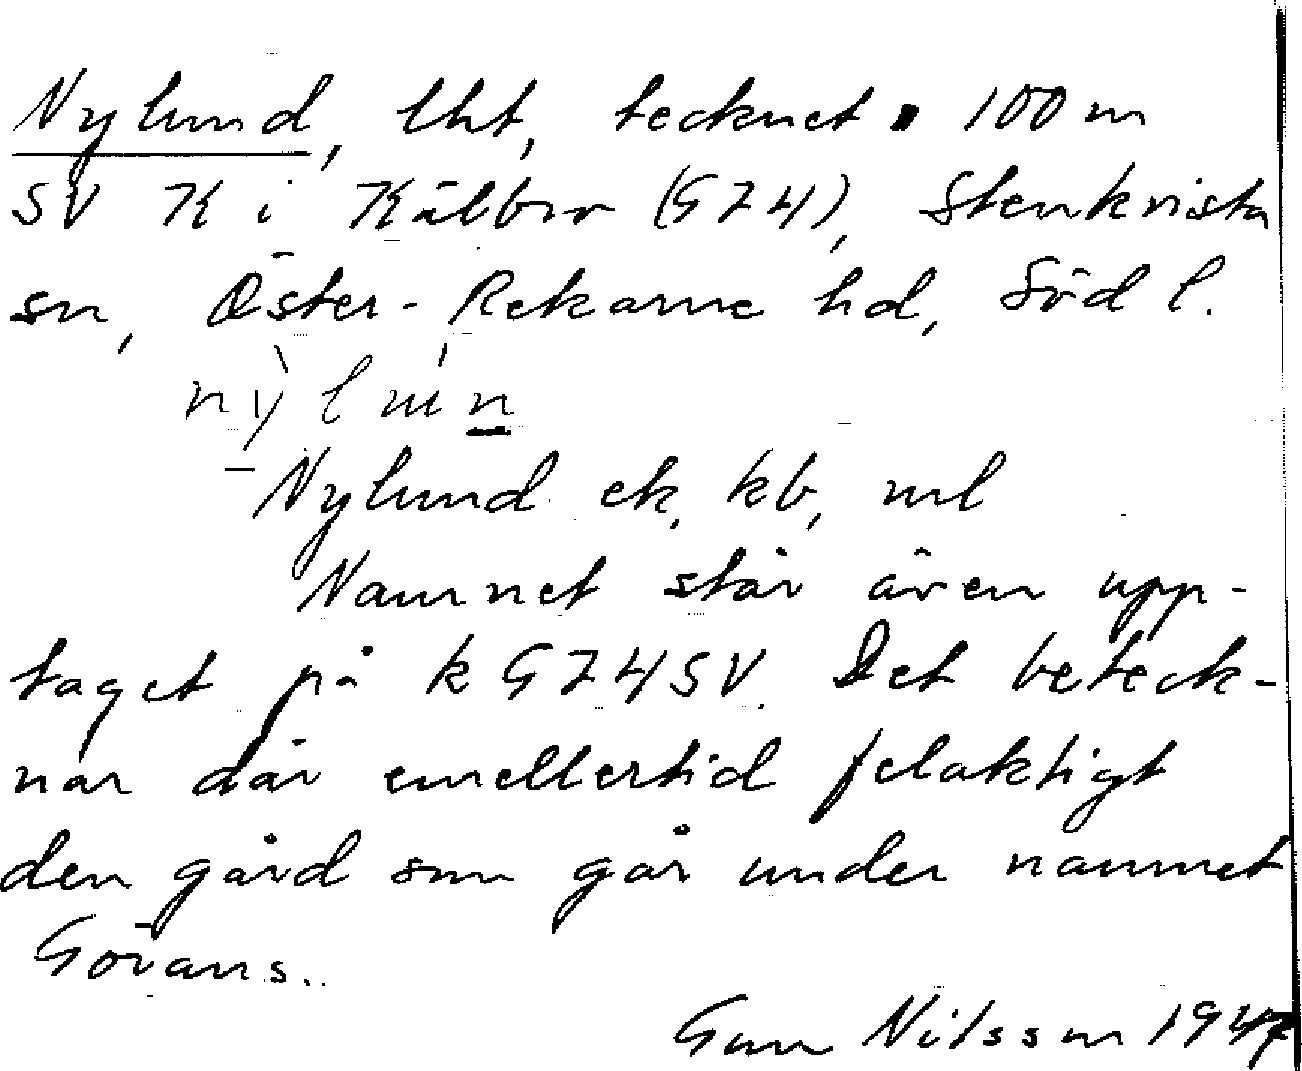 Nylund, lht, tecknet ▪ 100 m
SV K i Kälbro (G74), Stenkvista
sn, Öster-Rekarne hd, Södl.
nỳlún
Nylund ek, kb, ml
Namnet står även upp-
taget på k G74SV. Det beteck-
nar där emellertid felaktigt
den gård som går under namnet
Görans.
Gun Nilsson 1947